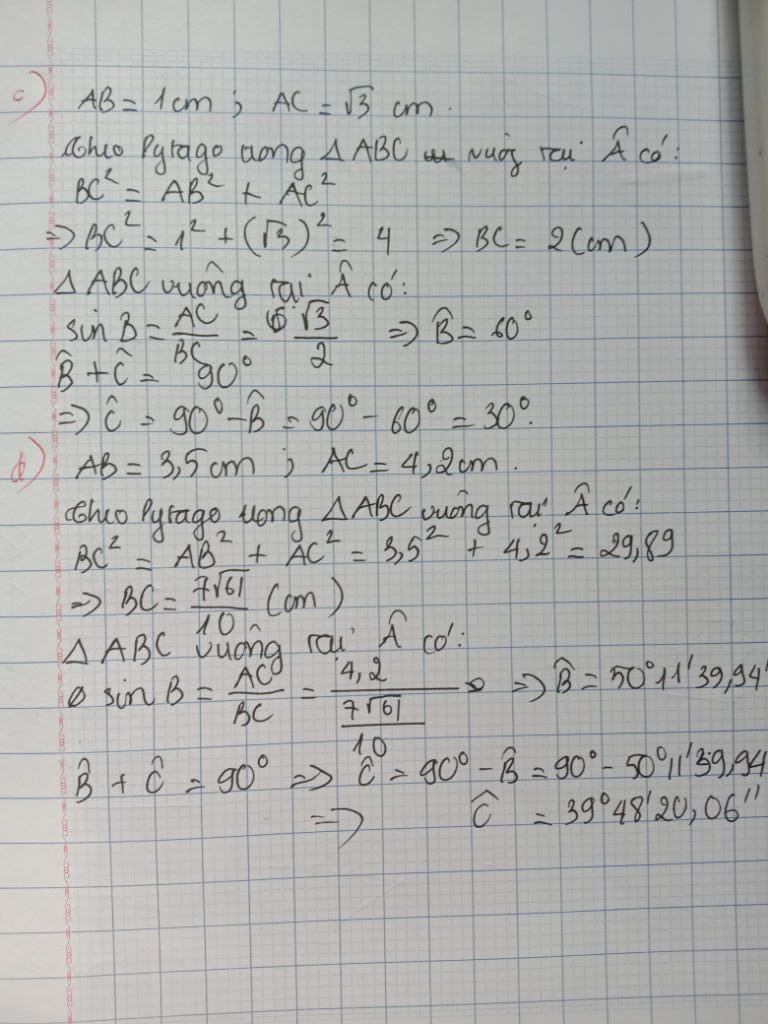 c) AB = 1cm ; AC = √3 cm.
Theo Pytago trong △ABC vuông tại Â có:
BC² = AB² + AC²
=> BC² = 1² + (√3)² = 4 => BC = 2(cm)
△ABC vuông tại Â có:
sin B = AC/BC = √3/2 => B̂ = 60°
B̂ + Ĉ = 90°
=> Ĉ = 90° - B̂ = 90° - 60° = 30°.
d) AB = 3,5cm ; AC = 4,2cm.
Theo Pytago trong △ABC vuông tại Â có:
BC² = AB² + AC² = 3,5² + 4,2² = 29,89
=> BC = 7√61/10 (cm)
△ABC vuông tại Â có:
sin B = AC/BC = 4,2/(7√61/10) => B̂ = 50°11'39,94'
B̂ + Ĉ = 90° => Ĉ = 90° - B̂ = 90° - 50°11'39,94
=> Ĉ = 39°48'20,06''